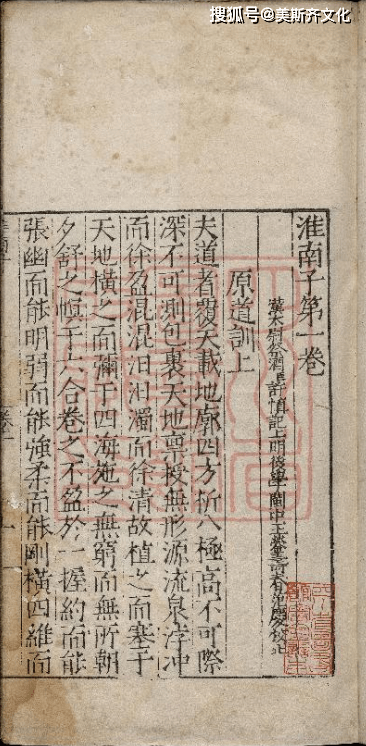 搜狐号@美斯齐文化
淮南子第一卷
漢太尉祭酒臣許慎記上明後學閩中王鎣
原道訓上
夫道者覆天載地廓四方柝八極高不可際
深不可測包裹天地稟授無形源流泉浡冲
而徐盈混混汩汩濁而徐清故植之而塞于
天地橫之而彌于四海施之無窮而無所朝
夕舒之幎于六合卷之不盈於一握約而能
張幽而能明弱而能強柔而能剛橫四維而